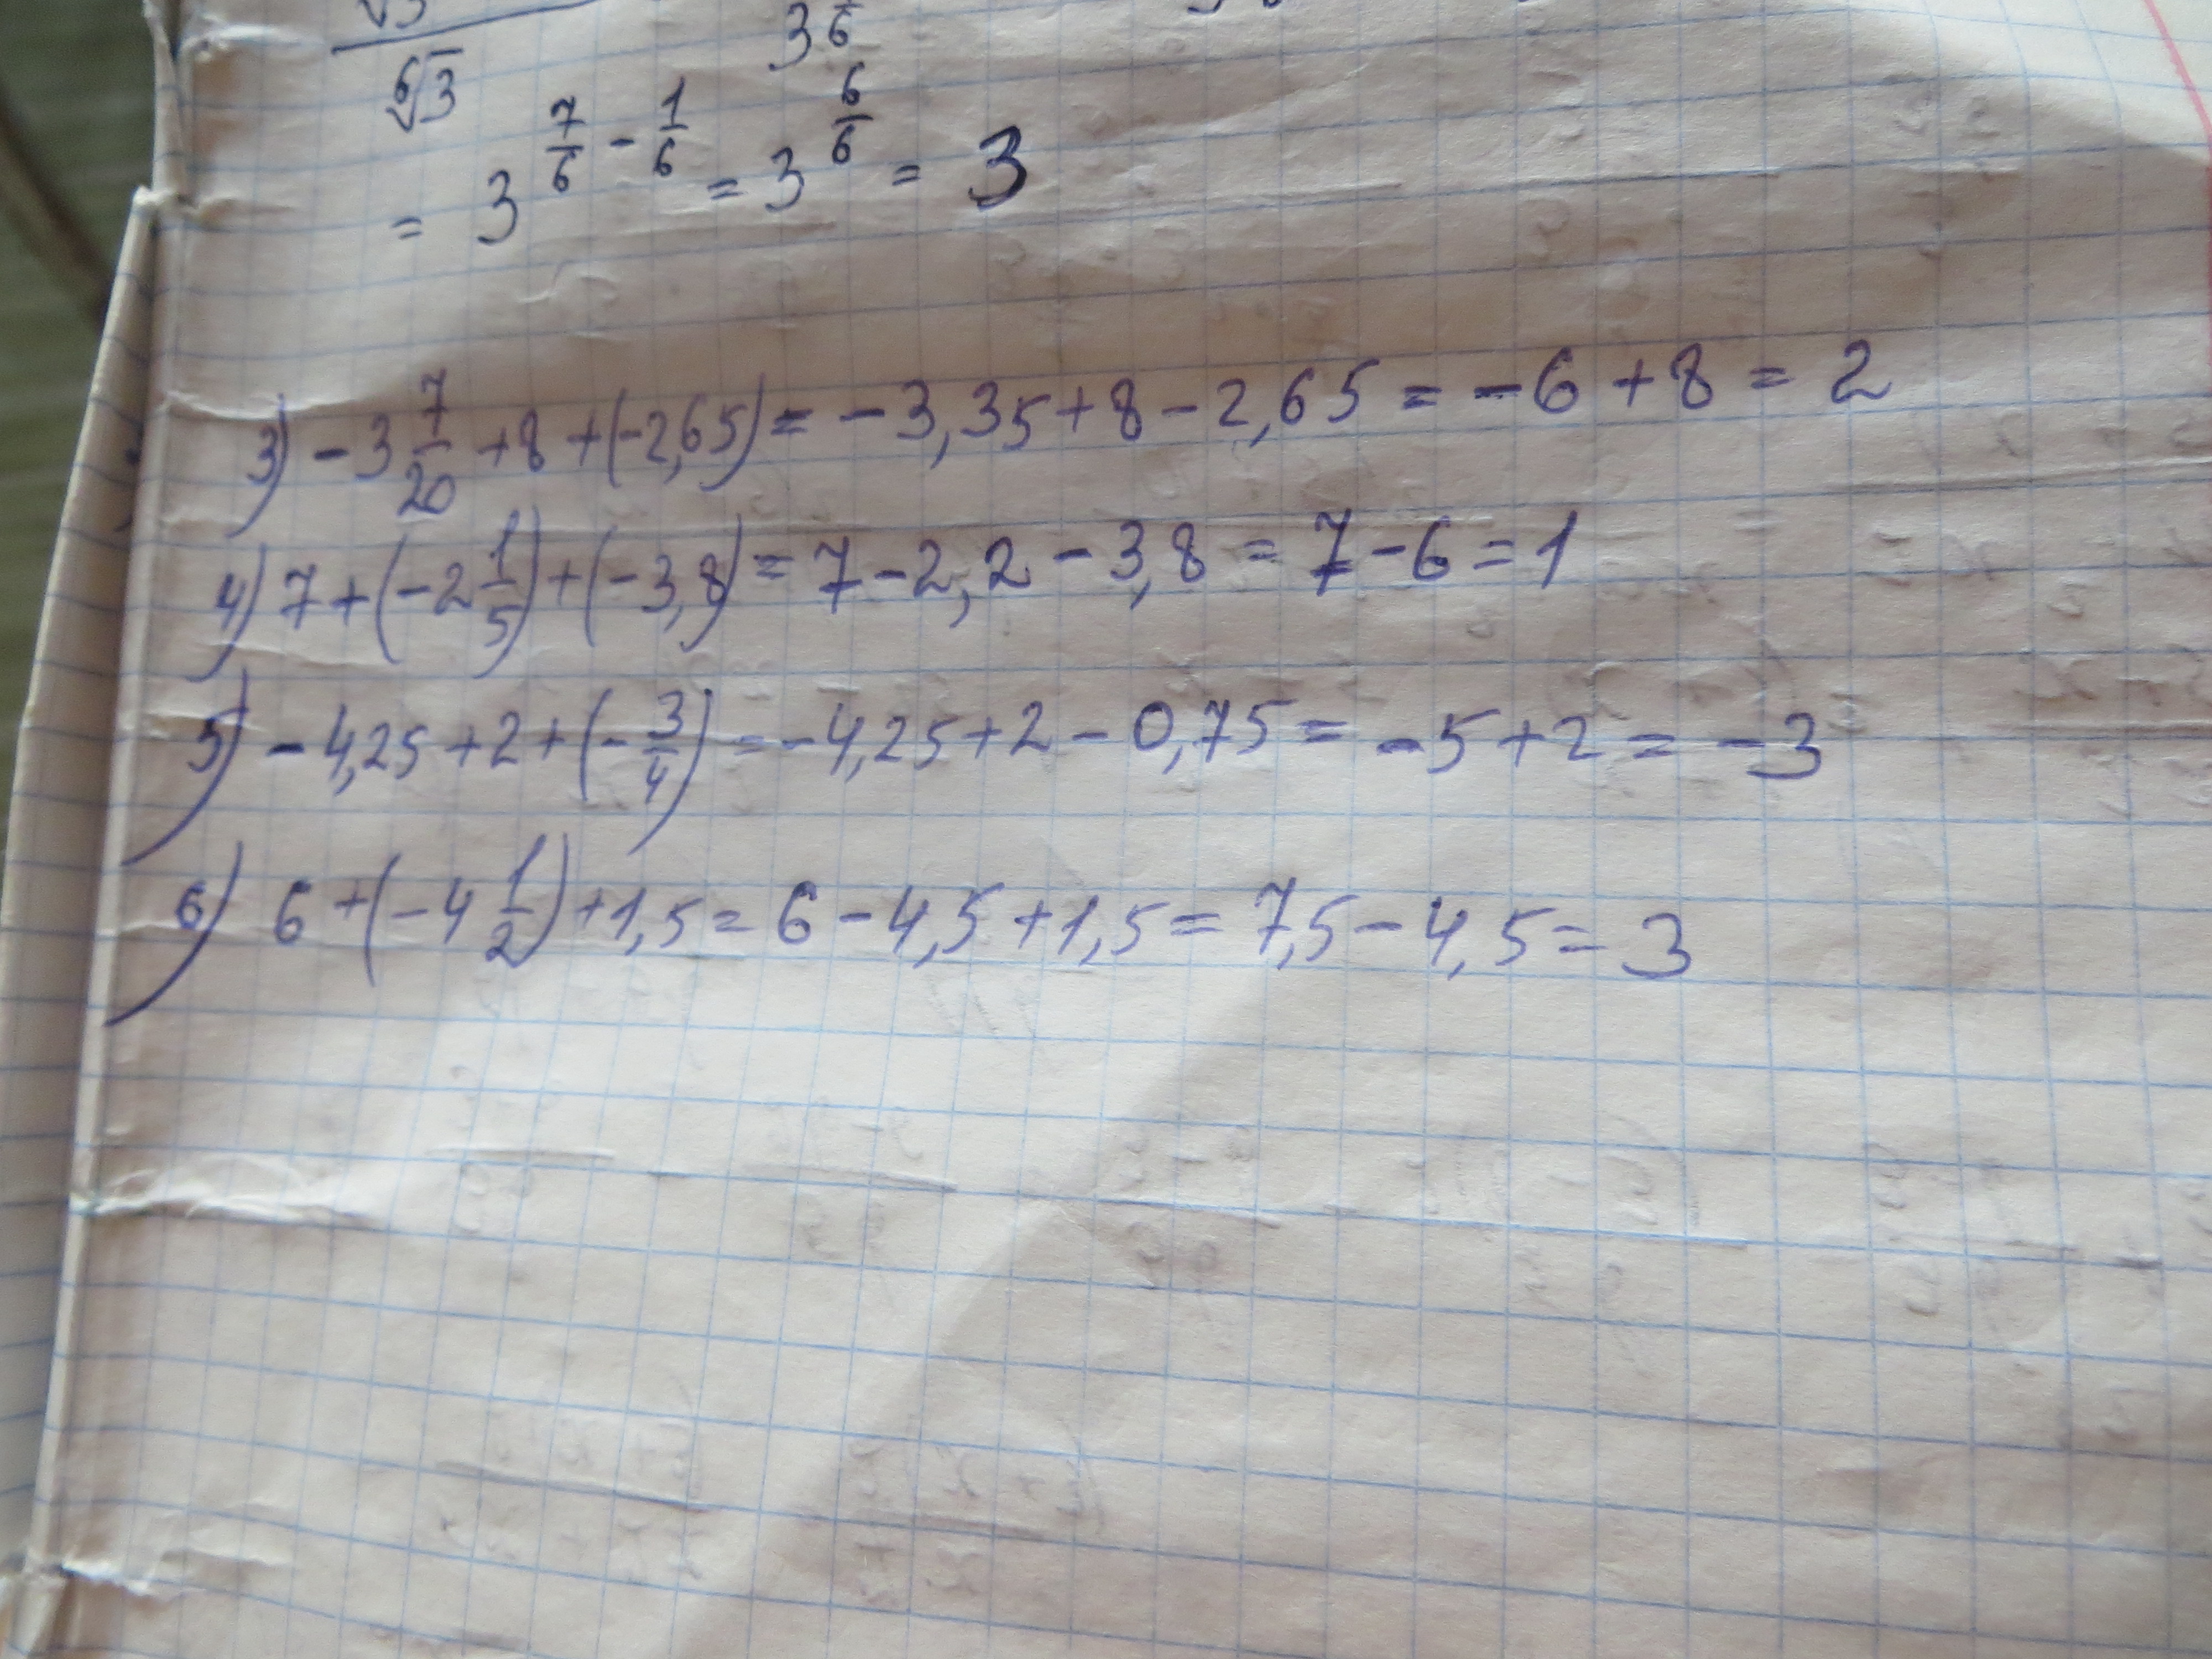 ⁶√3 3^(/6)
= 3^(7/6 - 1/6) = 3^(6/6) = 3
3) -3 7/20 +8 +(-2,65) = -3,35+8-2,65 = -6+8 = 2
4) 7+(-2 1/5)+(-3,8) = 7-2,2-3,8 = 7-6=1
5) -4,25+2+(-3/4) = -4,25+2-0,75 = -5+2 = -3
6) 6+(-4 1/2)+1,5 = 6-4,5+1,5 = 7,5-4,5 = 3